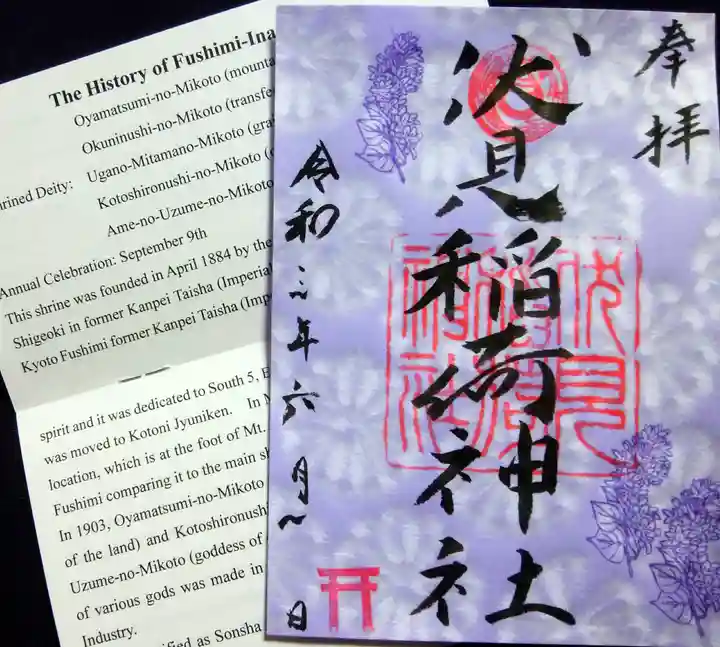 The History of Fushimi-Ina
Oyamatsumi-no-Mikoto (mounta
Okuninushi-no-Mikoto (transfe
hrined Deity: Ugano-Mitamano-Mikoto (gra
Kotoshironushi-no-Mikoto (
Ame-no-Uzume-no-Mikoto
Annual Celebration: September 9th
This shrine was founded in April 1884 by the
Shigeoki in former Kanpei Taisha (Imperial
Kyoto Fushimi former Kanpei Taisha (Impe
spirit and it was dedicated to South 5, E
was moved to Kotoni Jyuniken. In M
location, which is at the foot of Mt.
Fushimi comparing it to the main sh
In 1903, Oyamatsumi-no-Mikoto
of the land) and Kotoshironushi
Uzume-no-Mikoto (goddess of
of various gods was made in
Industry.
ified as Sonsha
奉拝
伏見稲荷神社
伏見稲荷神社
令和三年六月 日